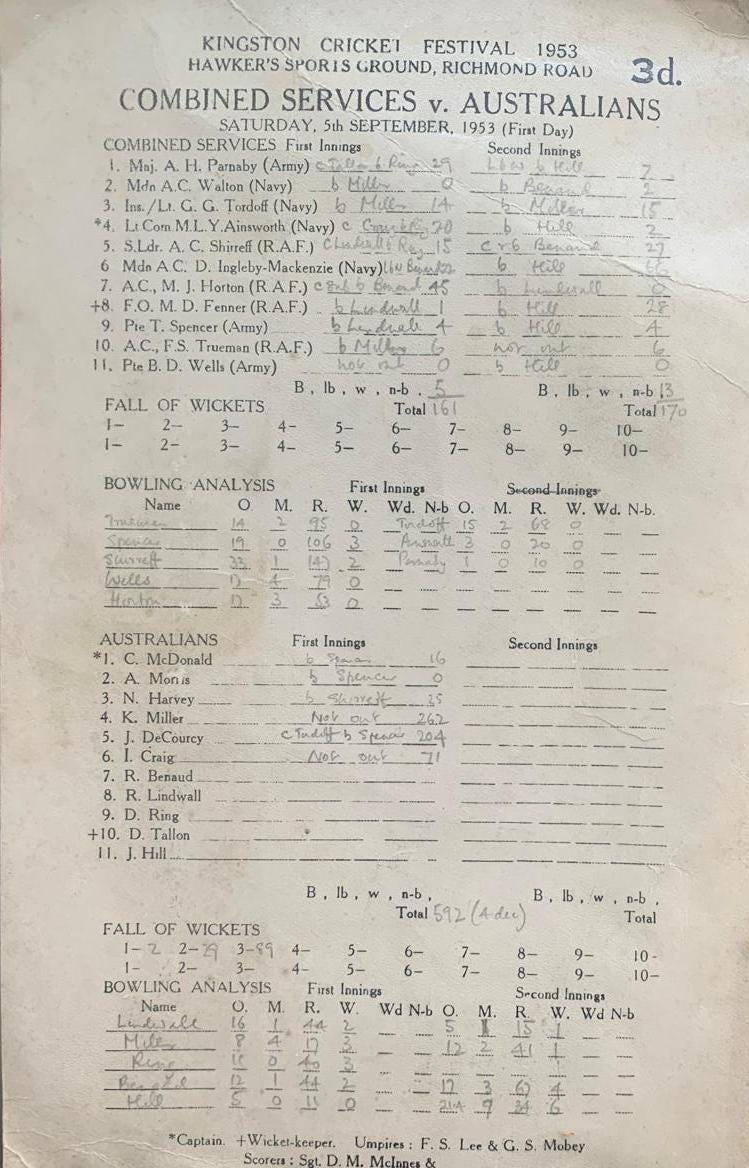 KINGSTON CRICKET FESTIVAL 1953
HAWKER'S SPORTS GROUND, RICHMOND ROAD 3d.
COMBINED SERVICES v. AUSTRALIANS
SATURDAY, 5th SEPTEMBER, 1953 (First Day)
COMBINED SERVICES First Innings Second Innings
1. Maj. A. H. Parnaby (Army) c Tallon b Ring 29 Lbw b Hill 7
2. Mdn A.C. Walton (Navy) b Miller 0 b Benaud 2
3. Ins./Lt. G. G. Tordoff (Navy) b Miller 14 b Miller 15
*4. Lt Com M.L.Y. Ainsworth (Navy) c b Ring 20 b Hill 2
5. S.Ldr. A. C. Shirreff (R.A.F.) c Lindwall b Ring 15 c & b Benaud 27
6 Mdn A.C. D. Ingleby-Mackenzie (Navy) lbw Benaud 22 b Hill 66
7. A.C., M. J. Horton (R.A.F.) c b Benaud 45 b Lindwall 0
+8. F.O. M. D. Fenner (R.A.F.) b Lindwall 1 b Hill 28
9. Pte T. Spencer (Army) b Lindwall 4 b Hill 4
10. A.C., F.S. Trueman (R.A.F.) b Miller 6 not out 6
11. Pte B. D. Wells (Army) not out 0 b Hill 0
B , lb , w , n-b . 5 B , lb , w , n-b 13
FALL OF WICKETS Total 161 Total 170
1- 2- 3- 4- 5- 6- 7- 8- 9- 10-
1- 2- 3- 4- 5- 6- 7- 8- 9- 10-
BOWLING ANALYSIS First Innings Second Innings
Name O M. R. W. Wd. N-b O. M. R. W. Wd. N-b.
Trueman 14 2 95 0 Tordoff 15 2 68 0
Spencer 19 0 106 3 3 0 20 0
Shirreff 1 147 2 Parnaby 1 0 10 0
Wells 4 79 0
Horton 3 53 0
AUSTRALIANS First Innings Second Innings
*1. C. McDonald b Spencer 16
2. A. Morris b Spencer 0
3. N. Harvey b Shirreff 35
4. K. Miller Not out 262
5. J. DeCourcy c Tordoff b Spencer 204
6. I. Craig Not out 71
7. R. Benaud
8. R. Lindwall
9. D. Ring
+10. D. Tallon
11. J. Hill
B , lb , w , n-b , B , lb , w , n-b ,
Total 592 (4 dec) Total
FALL OF WICKETS
1- 2 2- 3-89 4- 5- 6- 7- 8- 9- 10-
1- 2- 3- 4- 5- 6- 7- 8- 9- 10-
BOWLING ANALYSIS First Innings Second Innings
Name O. M. R. W. Wd N-b O. M. R. W. Wd N-b
Lindwall 16 1 44 2 5 1 15 1
Miller 8 4 17 3 12 2 41 1
Ring 11 0 40 3
Benaud 12 1 44 2 17 3 67 4
Hill 5 0 11 0 21.4 9 34 6
*Captain. +Wicket-keeper. Umpires : F. S. Lee & G. S. Mobey
Scorers : Sgt. D. M. McInnes &